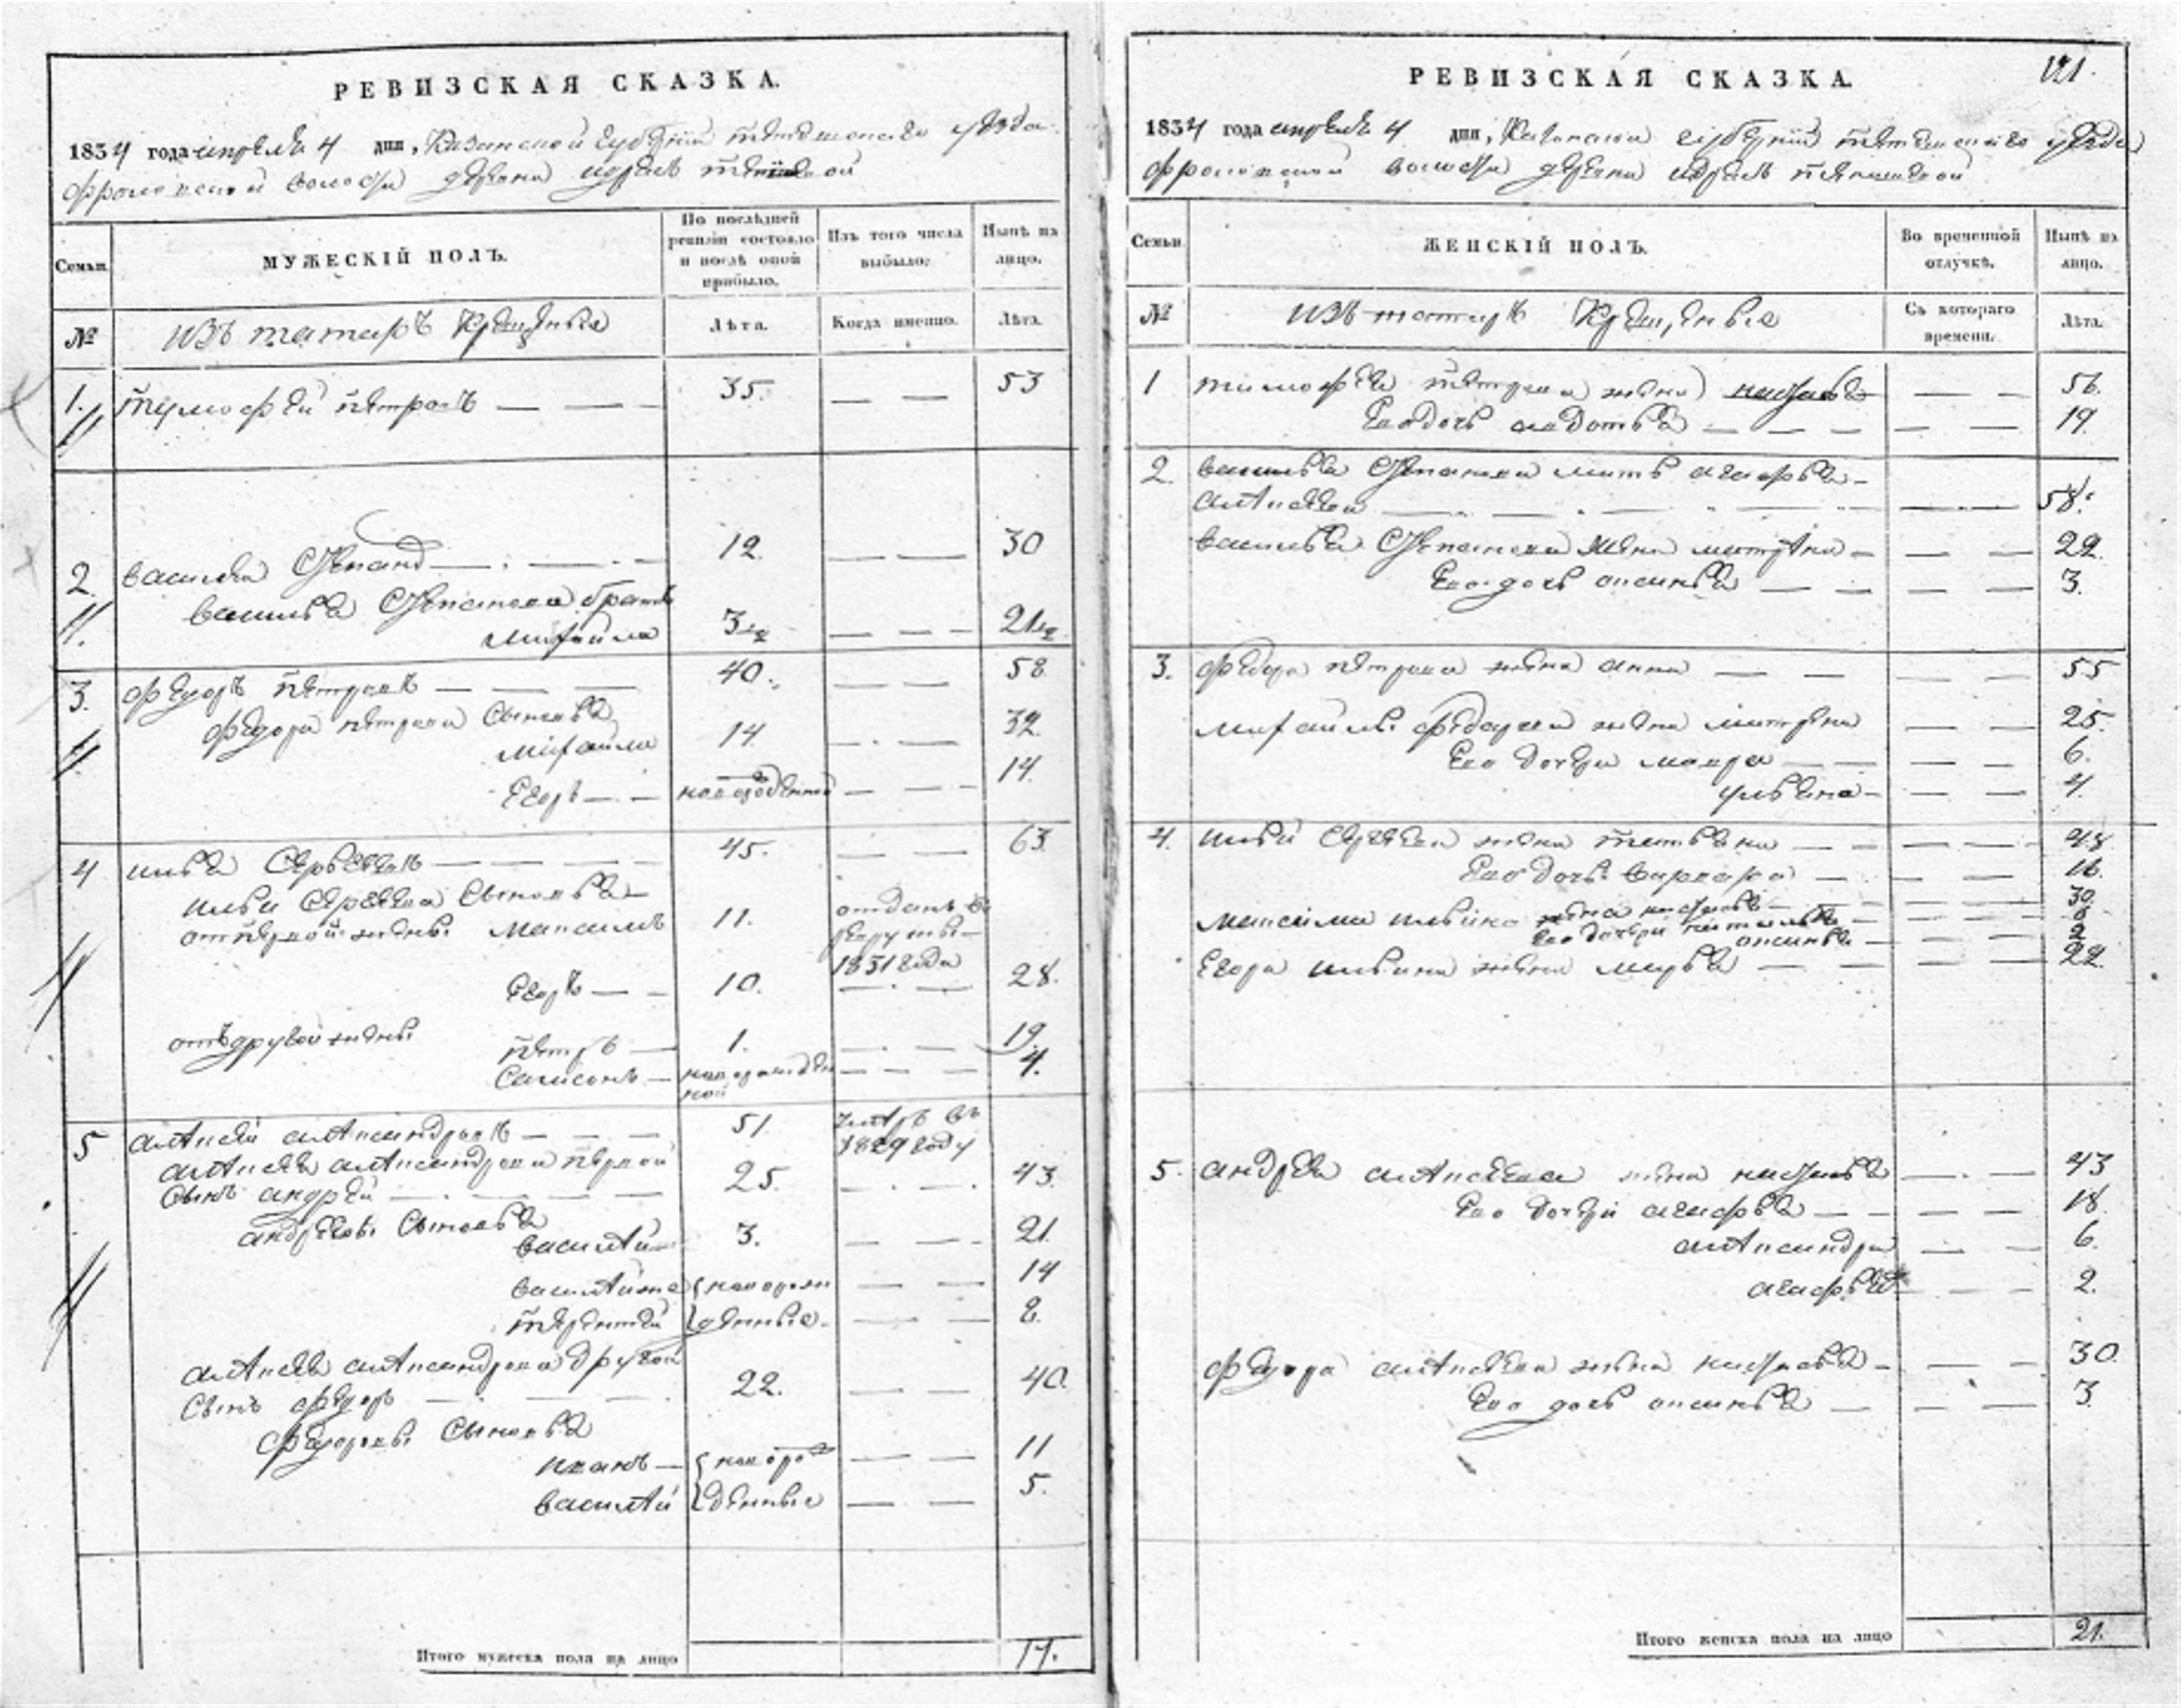 РЕВИЗСКАЯ СКАЗКА.
1834 года апреля 4 дня, Казанской губернии уезда
волости деревни
Семьи.
МУЖЕСКІЙ ПОЛЪ.
По послѣдней ревизіи состояло и послѣ оной прибыло.
Изъ того числа выбыло:
Нынѣ на лицо.
№
изъ татаръ крещеные
Лѣта.
Когда именно.
Лѣта.
1. Тимофей Петровъ — — — 35. — — 53
2. Василей Степановъ — 12. — — 30
Василья Степанова братъ
Михайла 3 — — — 21
3. Федоръ Петровъ — — — 40. — — 58
Федора Петрова сыновья
Михайла 14 — — 32.
Егоръ — — новорожденной — — — 14.
4 Илья Сергеевъ — — — — 45. — — 63
Ильи Сергеева сыновья
от первой жены Максимъ 11. отданъ в
рекруты
1831 года
Егоръ — — 10. — — 28.
отъ другой жены
Петръ — 1. — — 19.
Самсонъ — новорожденной — — — 4.
5 Алексей Александровъ — — — 51 умеръ въ
1829 году
Алексея Александрова первой
сынъ Андрей — — — 25. — — 43.
Андреевы сыновья
Василей 3. — — 21.
Василей же новорож — — 14
Терентей денные — — — 8.
Алексея Александрова другой
сынъ Федоръ — — 22. — — 40.
Федоровы сыновья
Иванъ — новорож — — 11
Василей денные — — 5.
Итого мужеска пола на лицо 17.
РЕВИЗСКАЯ СКАЗКА.
1834 года апреля 4 дня, Казанской губернии уезда
волости деревни
Семьи.
ЖЕНСКІЙ ПОЛЪ.
Во временной отлучкѣ.
Нынѣ на лицо.
№
изъ татаръ крещеные
Съ котораго времени.
Лѣта.
1 Тимофея Петрова жена Настасья — — — 56.
Ево дочь Авдотья — — — — — 19.
2. Василья Степанова мать Агафья —
Алексеева — — — 58.
Василья Степанова жена Матрена — — — 22.
Ево дочь Аксинья — — — — 3.
3. Федора Петрова жена Анна — — — — 55
Михайлы Федорова жена Матрена — — 25.
Ево дочери Мавра — — — — 6.
Ульяна — — — 4.
4. Ильи Сергеева жена Татьяна — — — — 48
Ево дочь Варвара — — — 16.
Максима Ильина жена Настасья — — — 30.
Ево дочери Наталья — — — 8
Аксинья — — — 2
Егора Ильина жена Марья — — — — 22.
5. Андрея Алексеева жена Настасья — — 43
Ево дочери Агафья — — — — 18.
Александра — — 6.
Агафья — — 2.
Федора Алексеева жена Настасья — — — 30.
Ево дочь Аксинья — — — 3.
Итого женска пола на лицо 21.